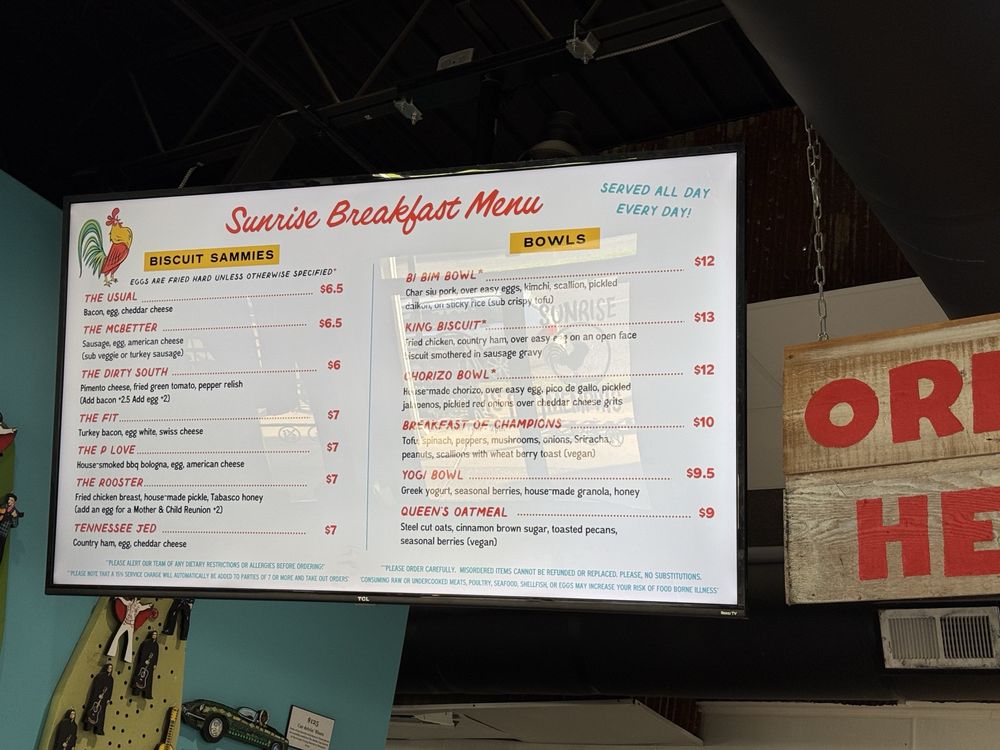 Sunrise Breakfast Menu
SERVED ALL DAY
EVERY DAY!
BISCUIT SAMMIES
EGGS ARE FRIED HARD UNLESS OTHERWISE SPECIFIED*
THE USUAL $6.5
Bacon, egg, cheddar cheese
THE MCBETTER $6.5
Sausage, egg, american cheese
(sub veggie or turkey sausage)
THE DIRTY SOUTH $6
Pimento cheese, fried green tomato, pepper relish
(Add bacon +2.5 Add egg +2)
THE FIT $7
Turkey bacon, egg white, swiss cheese
THE P LOVE $7
House-smoked bbq bologna, egg, american cheese
THE ROOSTER $7
Fried chicken breast, house-made pickle, Tabasco honey
(add an egg for a Mother & Child Reunion +2)
TENNESSEE JED $7
Country ham, egg, cheddar cheese
BOWLS
BI BIM BOWL* $12
Char siu pork, over easy eggs, kimchi, scallion, pickled
daikon, on sticky rice (sub crispy tofu)
KING BISCUIT* $13
Fried chicken, country ham, over easy egg on an open face
biscuit smothered in sausage gravy
CHORIZO BOWL* $12
House-made chorizo, over easy egg, pico de gallo, pickled
jalapenos, pickled red onions over cheddar cheese grits
BREAKFAST OF CHAMPIONS $10
Tofu, spinach, peppers, mushrooms, onions, Sriracha,
peanuts, scallions with wheat berry toast (vegan)
YOGI BOWL $9.5
Greek yogurt, seasonal berries, house-made granola, honey
QUEEN'S OATMEAL $9
Steel cut oats, cinnamon brown sugar, toasted pecans,
seasonal berries (vegan)
*PLEASE ALERT OUR TEAM OF ANY DIETARY RESTRICTIONS OR ALLERGIES BEFORE ORDERING!*
**PLEASE NOTE THAT A 15% SERVICE CHARGE WILL AUTOMATICALLY BE ADDED TO PARTIES OF 7 OR MORE AND TAKE OUT ORDERS*
**PLEASE ORDER CAREFULLY. MISORDERED ITEMS CANNOT BE REFUNDED OR REPLACED. PLEASE, NO SUBSTITUTIONS.
*CONSUMING RAW OR UNDERCOOKED MEATS, POULTRY, SEAFOOD, SHELLFISH, OR EGGS MAY INCREASE YOUR RISK OF FOOD BORNE ILLNESS*
SUNRISE
TCL
Roku TV
ORD
HE
$125